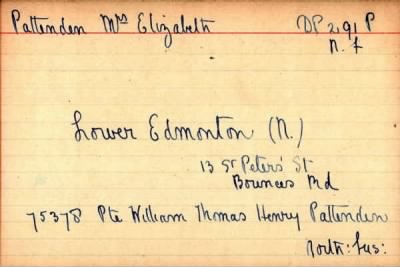 Pattenden Mrs Elizabeth DP 2191 P
N. f
Lower Edmonton (N.)
13 St Peters' St
Bounces Rd
75378 Pte William Thomas Henry Pattenden
North: Fus: